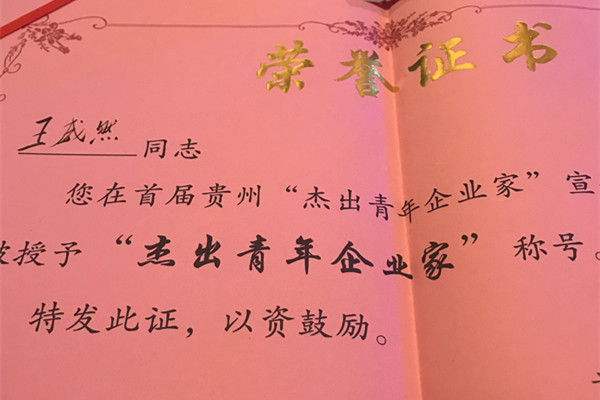 荣誉证书
王盛然 同志
您在首届贵州“杰出青年企业家”宣
授予“杰出青年企业家”称号。
特发此证，以资鼓励。